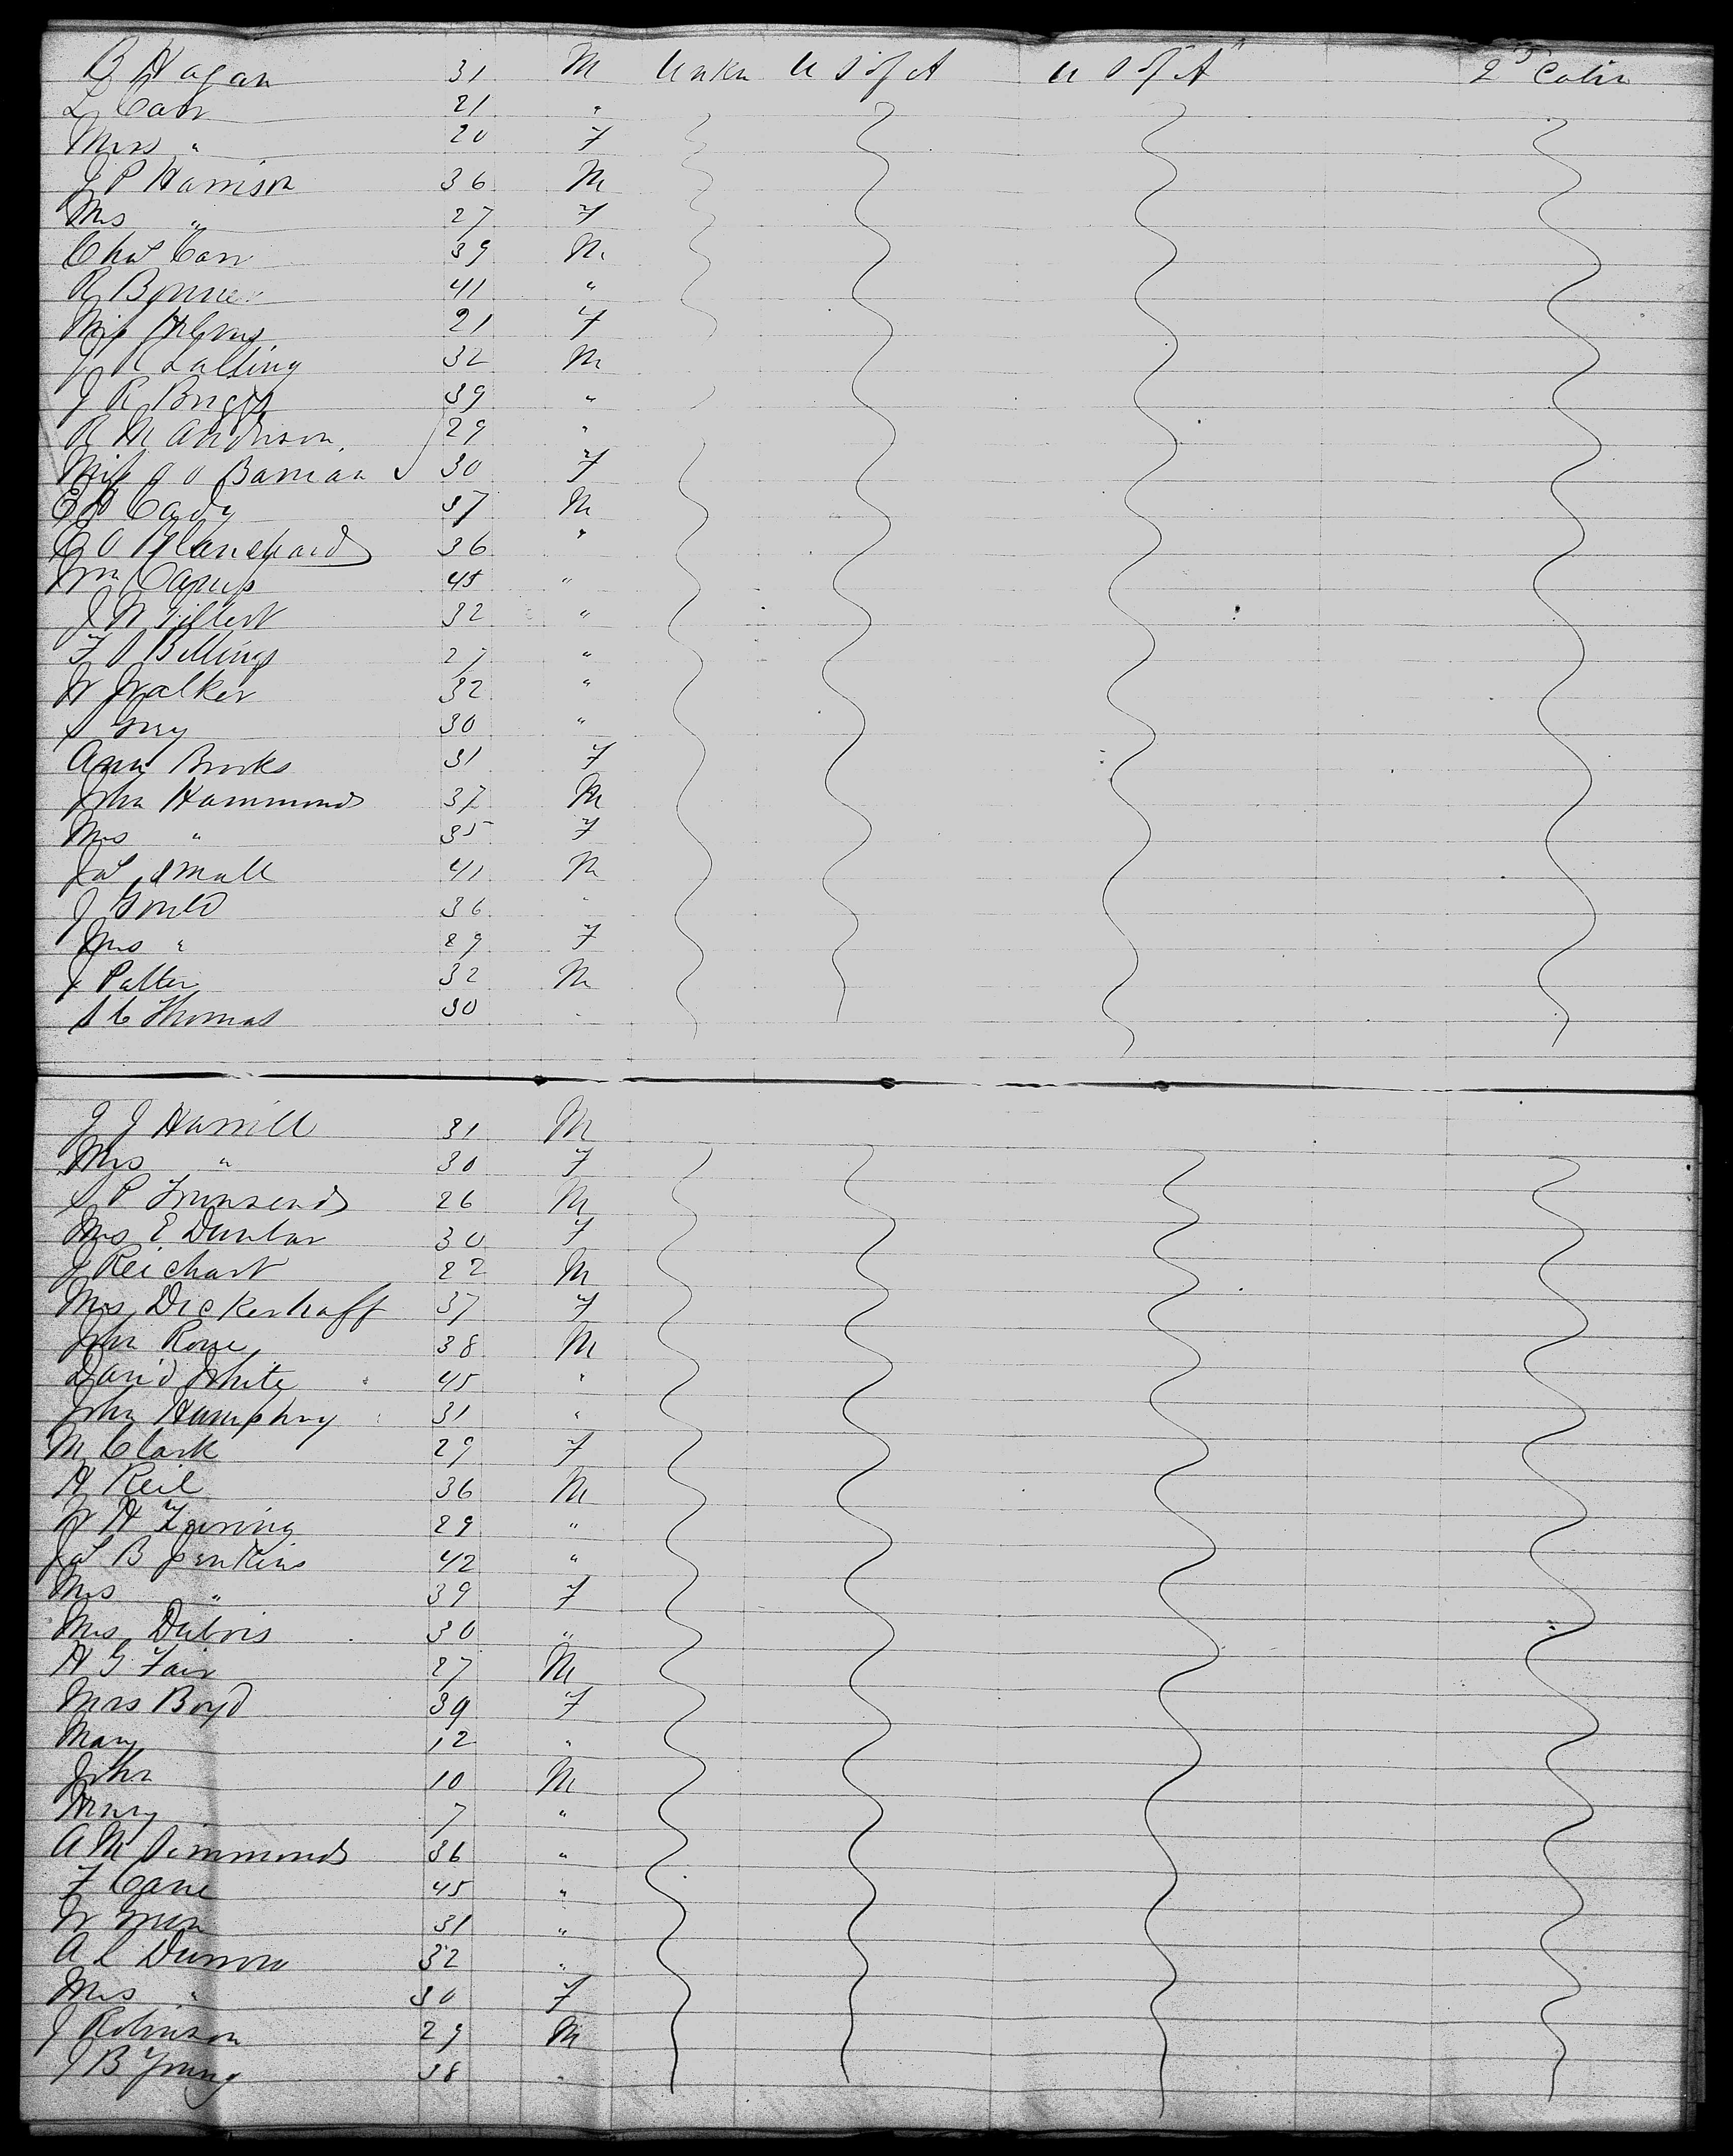 B Hagan 31 M Unkn U S of A U S of A 2d Cabin
L Carr 21 "
Mrs " 20 F
J P Harrison 36 M
Mrs " 27 F
Chas Carr 39 M
R Bynner 41 "
Miss 21 F
J R Lalling 32 M
J R Briggs 39 "
R M Anderson 29 "
Miss J O Barman ✓ 30 F
Cady 37 M
C O Blanchard 36 "
Wm 45 "
J W Gilbert 32 "
F S Billings 27 "
W Walker 32 "
S Gray 30 "
Ann Brooks 31 F
John Hammond 37 M
Mrs " 35 F
Jas Small 41 M
J Gould 36 "
Mrs " 29 F
J Patter 32 M
S C Thomas 30 "
J J Harrill 31 M
Mrs " 30 F
S P Townsend 26 M
Mrs E Dunbar 30 F
J Reichart 22 M
Mrs Dickerhaff 37 F
John Rowe 38 M
David White 45 "
John Humphry 31 "
M Clark 29 F
H Keil 36 M
W H Zearing 29 "
Jas B Jenkins 42 "
Mrs " 39 F
Mrs Dubois 30 "
H G Fair 27 M
Mrs Boyd 39 F
Mary 12 "
John 10 M
Henry 7 "
A M Simmonds 36 "
F Cane 45 "
W Green 31 "
A L Durrow 32 "
Mrs " 30 F
J Robinson 29 M
J B Young 38 "